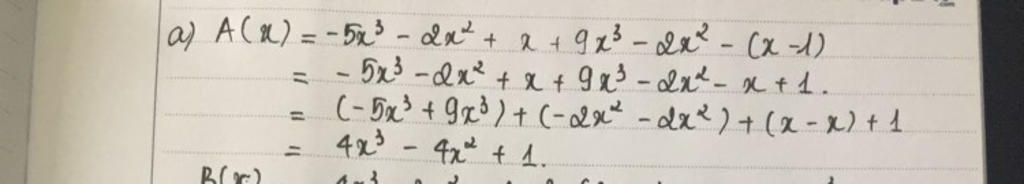 a) A(x) = -5x³ - 2x² + x + 9x³ - 2x² - (x - 1)
= -5x³ - 2x² + x + 9x³ - 2x² - x + 1.
= (-5x³ + 9x³) + (-2x² - 2x²) + (x - x) + 1
= 4x³ - 4x² + 1.
B(x)